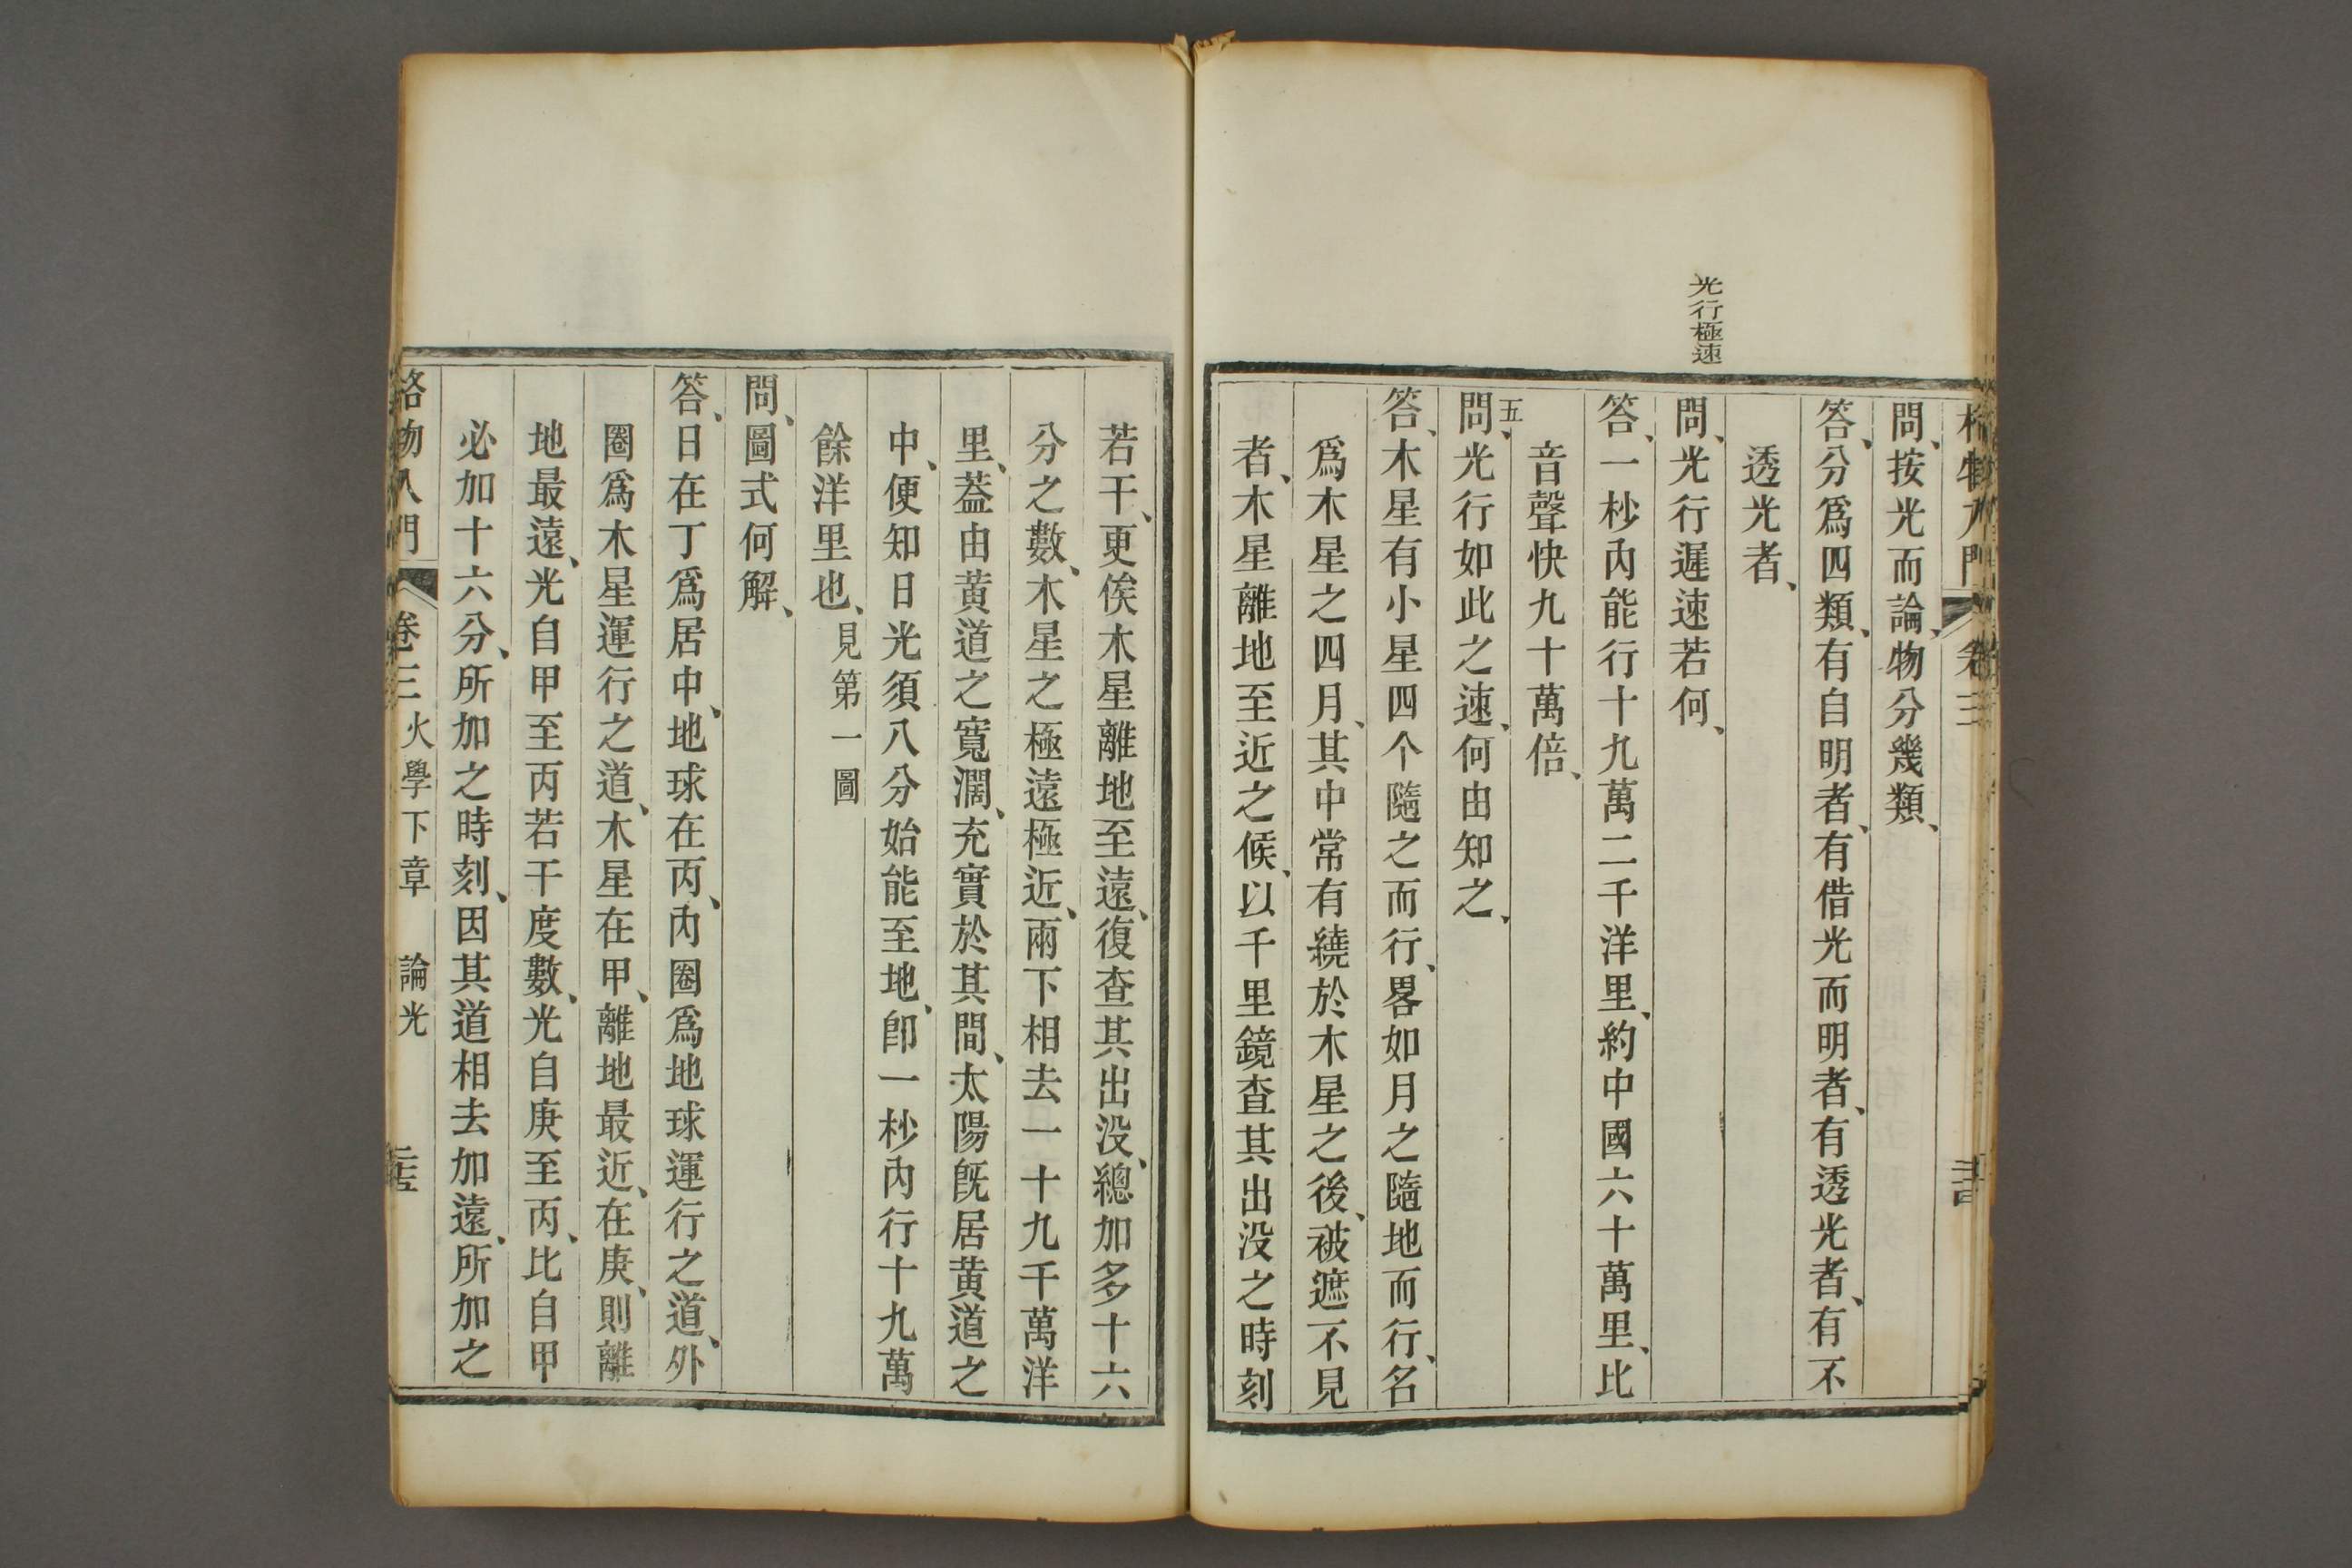 格物入門 卷三
光行極速
問、按光而論、物分幾類、
答、分爲四類、有自明者、有借光而明者、有透光者、有不
透光者、
問、光行遲速若何、
答、一秒內能行十九萬二千洋里、約中國六十萬里、比
音聲快九十萬倍、
五
問、光行如此之速、何由知之、
答、木星有小星四个隨之而行、畧如月之隨地而行、名
爲木星之四月、其中常有繞於木星之後、被遮不見
者、木星離地至近之候、以千里鏡查其出没之時刻
若干、更俟木星離地至遠、復查其出没、總加多十六
分之數、木星之極遠極近、兩下相去一十九千萬洋
里、葢由黃道之寬濶、充實於其間、太陽旣居黃道之
中、便知日光須八分始能至地、卽一秒內行十九萬
餘洋里也、見第一圖
問、圖式何解、
答、日在丁爲居中、地球在丙、內圈爲地球運行之道、外
圈爲木星運行之道、木星在甲、離地最近、在庚、則離
地最遠、光自甲至丙若干度數、光自庚至丙、比自甲
必加十六分、所加之時刻、因其道相去加遠、所加之
格物入門 卷三 火學下章 論光